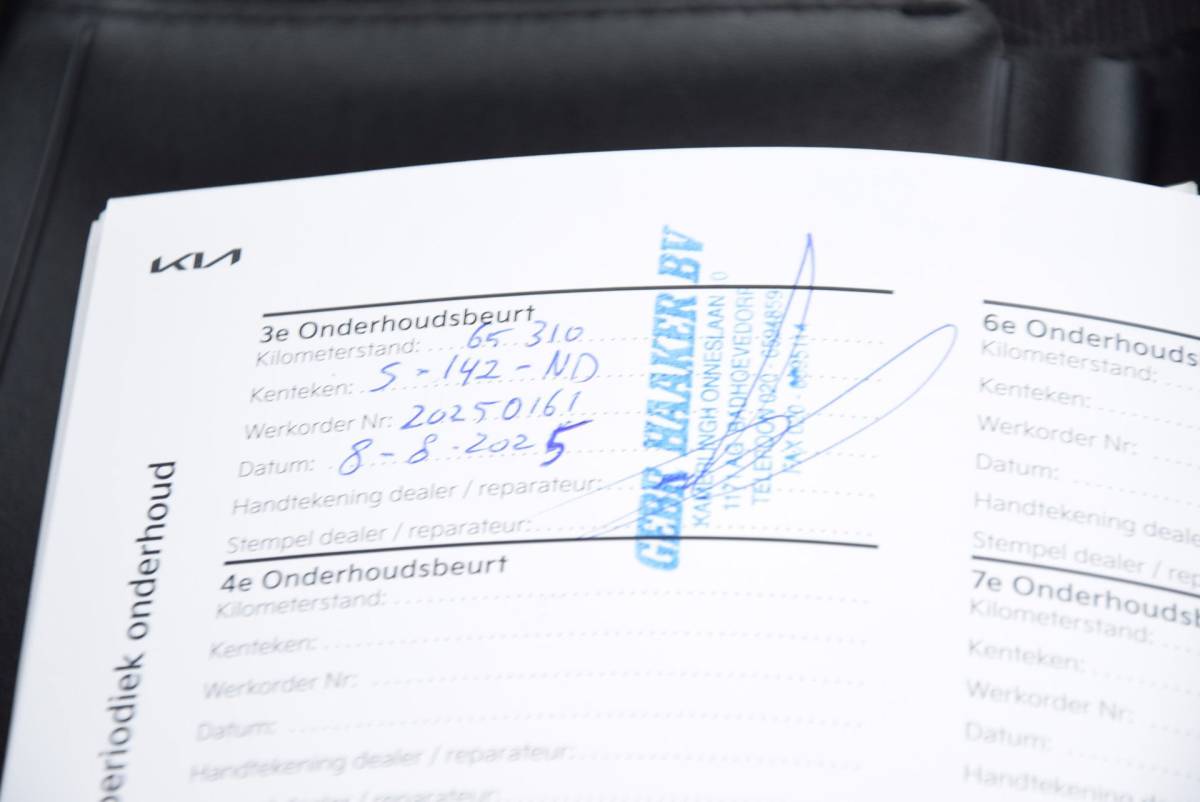 KIA
3e Onderhoudsbeurt
Kilometerstand: 65 310
Kenteken: S-142-ND
Werkorder Nr: 20250161
Datum: 8-8-2025
Handtekening dealer / reparateur:
Stempel dealer / reparateur:
GEBR HAAKER BV
KAMERLINGH ONNESLAAN
1171 AG BADHOEVEDORP
TELEFOON 020
FAX
4e Onderhoudsbeurt
Kilometerstand:
Kenteken:
Werkorder Nr:
Datum:
Handtekening dealer / reparateur:
dealer / reparateur:
periodiek onderhoud
6e Onderhouds
Kilometerstand:
Kenteken:
Werkorder Nr:
Datum:
Handtekening deale
Stempel dealer / rep
7e Onderhoudsb
Kilometerstand:
Kenteken:
Werkorder Nr:
Datum:
Handtekening